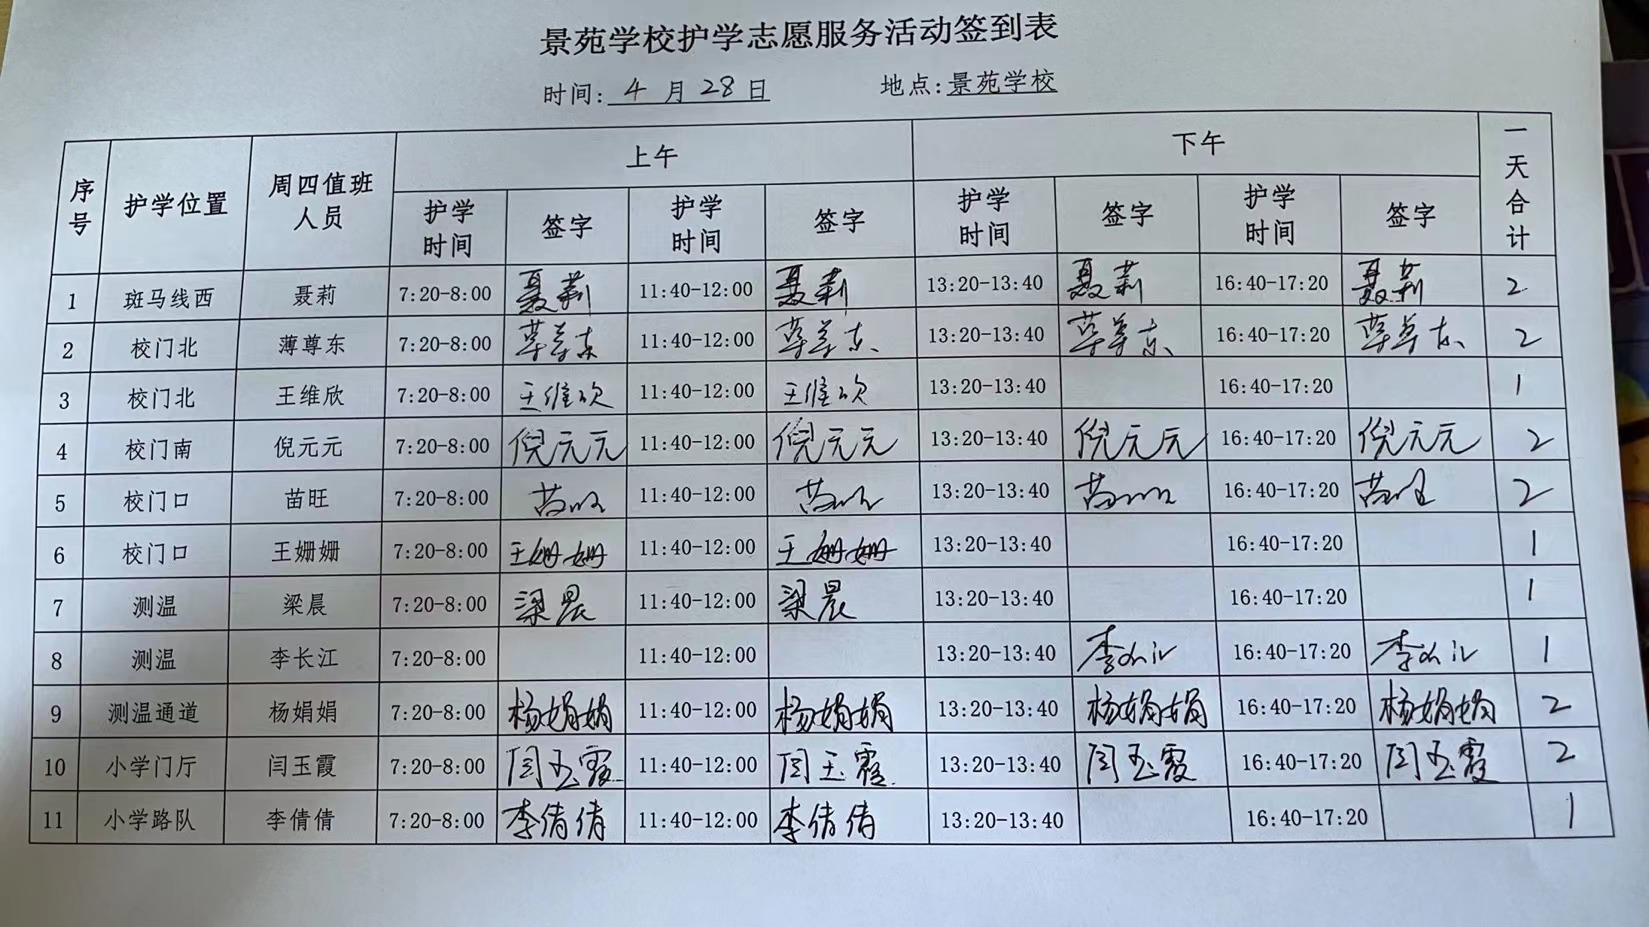 景苑学校护学志愿服务活动签到表
时间: 4 月 28 日 地点: 景苑学校
序号 护学位置 周四值班人员 上午 下午 一天合计
护学时间 签字 护学时间 签字 护学时间 签字 护学时间 签字
1 斑马线西 聂莉 7:20-8:00 聂莉 11:40-12:00 聂莉 13:20-13:40 聂莉 16:40-17:20 聂莉 2
2 校门北 薄尊东 7:20-8:00 薄尊东 11:40-12:00 薄尊东 13:20-13:40 薄尊东 16:40-17:20 薄尊东 2
3 校门北 王维欣 7:20-8:00 王维欣 11:40-12:00 王维欣 13:20-13:40 16:40-17:20 1
4 校门南 倪元元 7:20-8:00 倪元元 11:40-12:00 倪元元 13:20-13:40 倪元元 16:40-17:20 倪元元 2
5 校门口 苗旺 7:20-8:00 苗旺 11:40-12:00 苗旺 13:20-13:40 苗旺 16:40-17:20 苗旺 2
6 校门口 王姗姗 7:20-8:00 王姗姗 11:40-12:00 王姗姗 13:20-13:40 16:40-17:20 1
7 测温 梁晨 7:20-8:00 梁晨 11:40-12:00 梁晨 13:20-13:40 16:40-17:20 1
8 测温 李长江 7:20-8:00 11:40-12:00 13:20-13:40 李长江 16:40-17:20 李长江 1
9 测温通道 杨娟娟 7:20-8:00 杨娟娟 11:40-12:00 杨娟娟 13:20-13:40 杨娟娟 16:40-17:20 杨娟娟 2
10 小学门厅 闫玉霞 7:20-8:00 闫玉霞 11:40-12:00 闫玉霞 13:20-13:40 闫玉霞 16:40-17:20 闫玉霞 2
11 小学路队 李倩倩 7:20-8:00 李倩倩 11:40-12:00 李倩倩 13:20-13:40 16:40-17:20 1